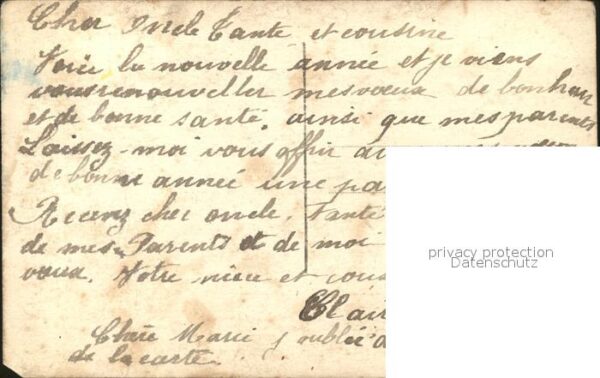 Cher Oncle Tante et cousine
Voici la nouvelle année et je viens
vous renouveller mes voeux de bonheur
et de bonne santé. ainsi que mes parents
Laissez-moi vous offrir
de bonne année une
Recevez cher oncle. Tante
de mes Parents et de moi
voeux. Votre niece et
Clai
Chère Marie j oublie
de la carte.
privacy protection
Datenschutz